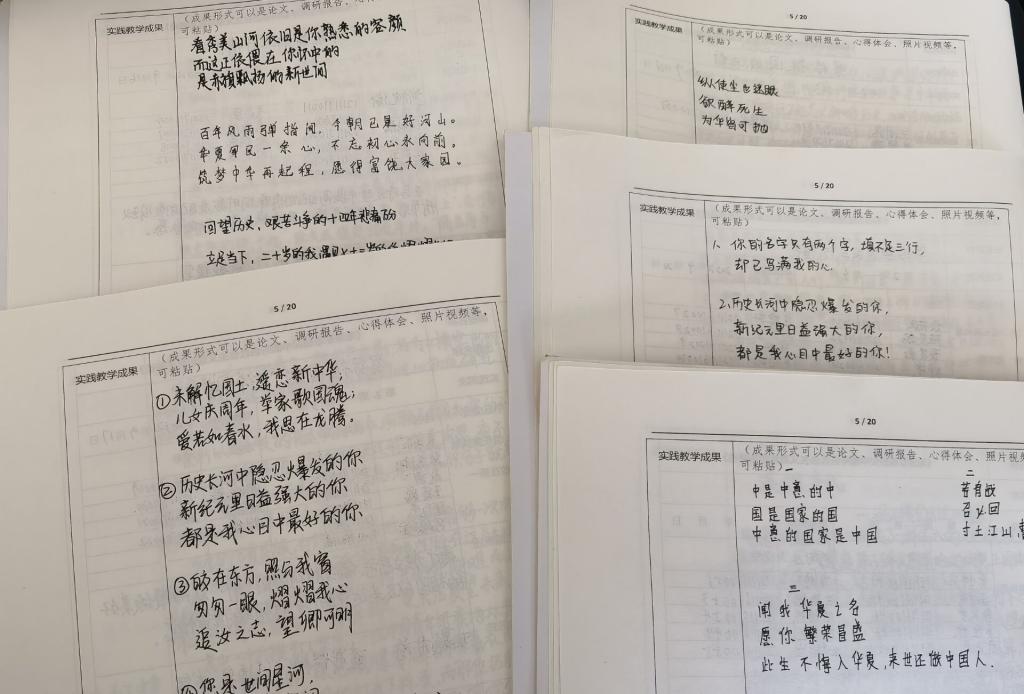 实践教学成果
(成果形式可以是论文、调研报告、心得体会、照片视频等,
可粘贴)
看秀美山河依旧是你熟悉的容颜
而这正依偎在你怀中的
是赤旗飘扬的新世间
百年风雨弹指间,今朝已是好河山。
华夏军民一条心,不忘初心永向前。
筑梦中华再起程,愿得富饶大家园。
回望历史,艰苦斗争的十四年悲痛万分
立足当下,二十岁的我遇见
5 / 20
(成果形式可以是论文、调研报告、心得体会、照片视频等,
可粘贴)
实践教学成果
纵使尘也迷眼
欲醉死生
为华皆可抛
5 / 20
实践教学成果
(成果形式可以是论文、调研报告、心得体会、照片视频等,
可粘贴)
1、你的名字只有两个字,填不足三行,
却已写满我的心.
2、历史长河中隐忍爆发的你,
新纪元里日益强大的你,
都是我心目中最好的你!
5 / 20
实践教学成果
(成果形式可以是论文、调研报告、心得体会、照片视频等,
可粘贴)
①未解忆国土,遥恋新中华,
儿女庆周年,举家歌国魂;
爱若如春水,我思在龙腾。
②历史长河中隐忍爆发的你
新纪元里日益强大的你
都是我心目中最好的你
③皎在东方,照与我窗
匆匆一眼,熠熠我心
追汝之志,望卿可明
④你是世间星河,
5 / 20
实践教学成果
(成果形式可以是论文、调研报告、心得体会、照片视
可粘贴)
一
中是中意的中
国是国家的国
中意的国家是中国
二
若有战
召必回
寸土江山
三
闻我华夏之名
愿你繁荣昌盛
此生不悔入华夏,来世还做中国人.